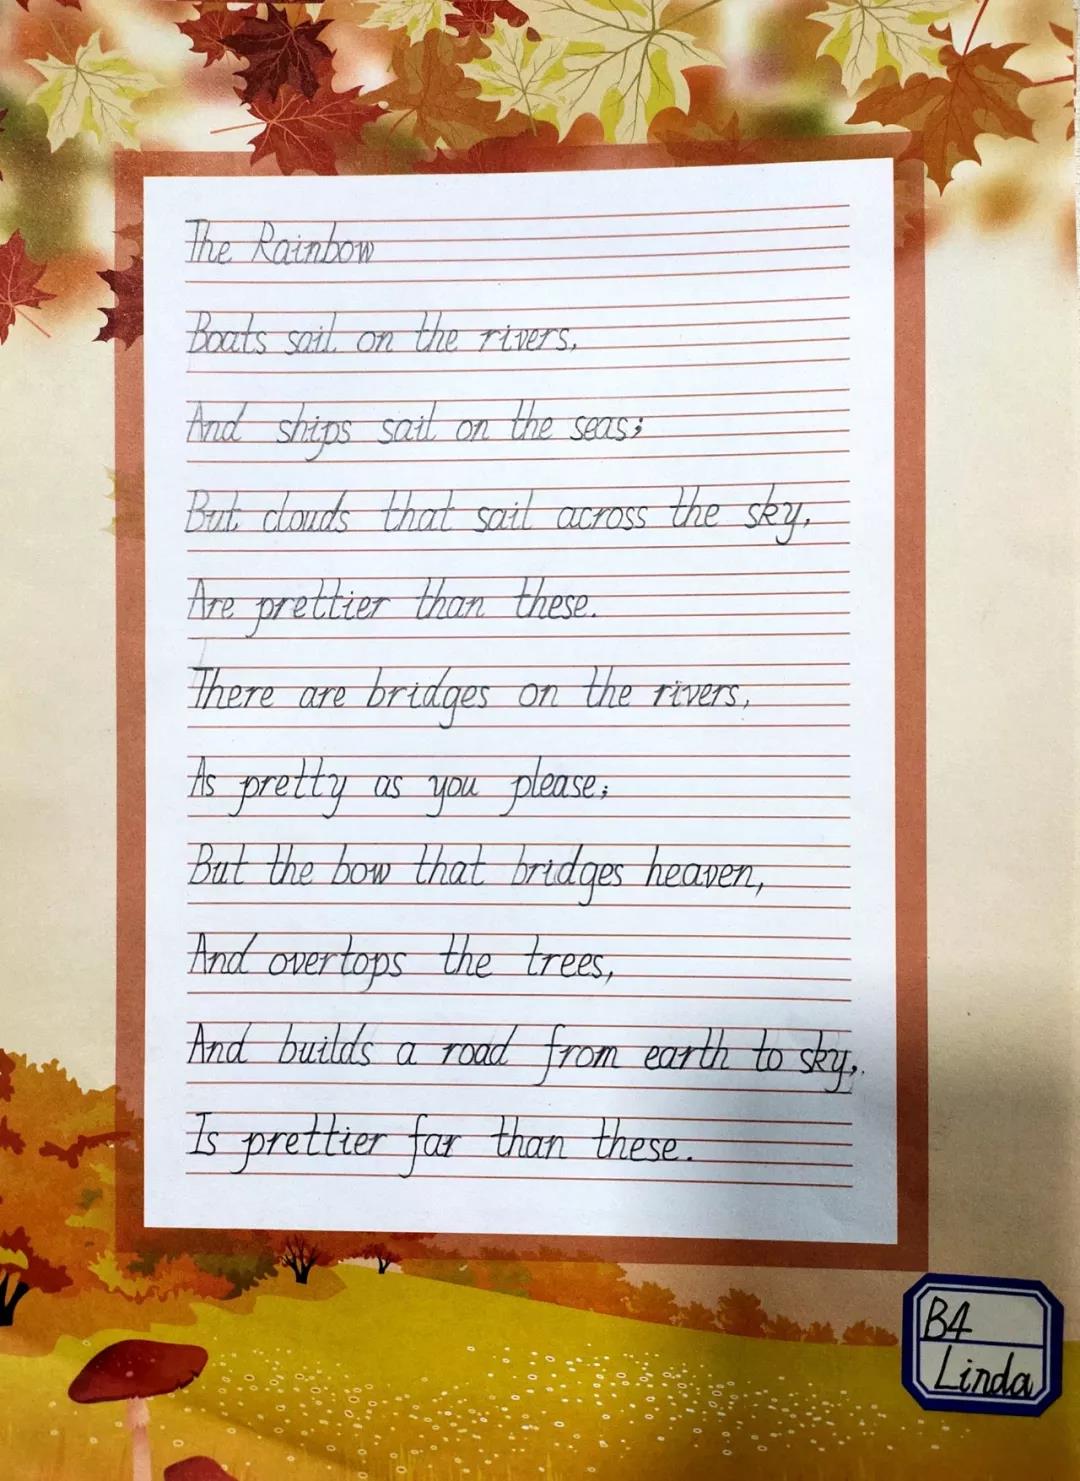 The Rainbow
Boats sail on the rivers,
And ships sail on the seas;
But clouds that sail across the sky,
Are prettier than these.
There are bridges on the rivers,
As pretty as you please;
But the bow that bridges heaven,
And overtops the trees,
And builds a road from earth to sky,
Is prettier far than these.
B4
Linda